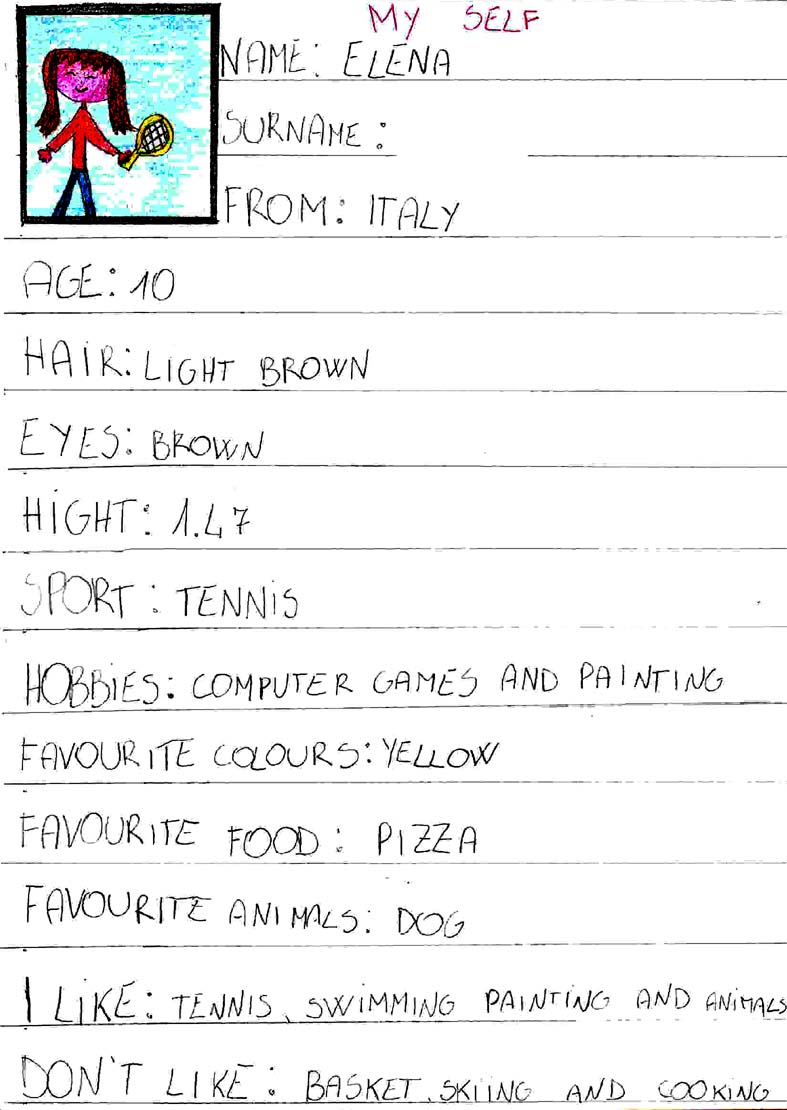 MY SELF
NAME: ELENA
SURNAME:
FROM: ITALY
AGE: 10
HAIR: LIGHT BROWN
EYES: BROWN
HIGHT: 1.47
SPORT: TENNIS
HOBBIES: COMPUTER GAMES AND PAINTING
FAVOURITE COLOURS: YELLOW
FAVOURITE FOOD: PIZZA
FAVOURITE ANIMALS: DOG
I LIKE: TENNIS, SWIMMING PAINTING AND ANIMALS
DON'T LIKE: BASKET, SKIING AND COOKING